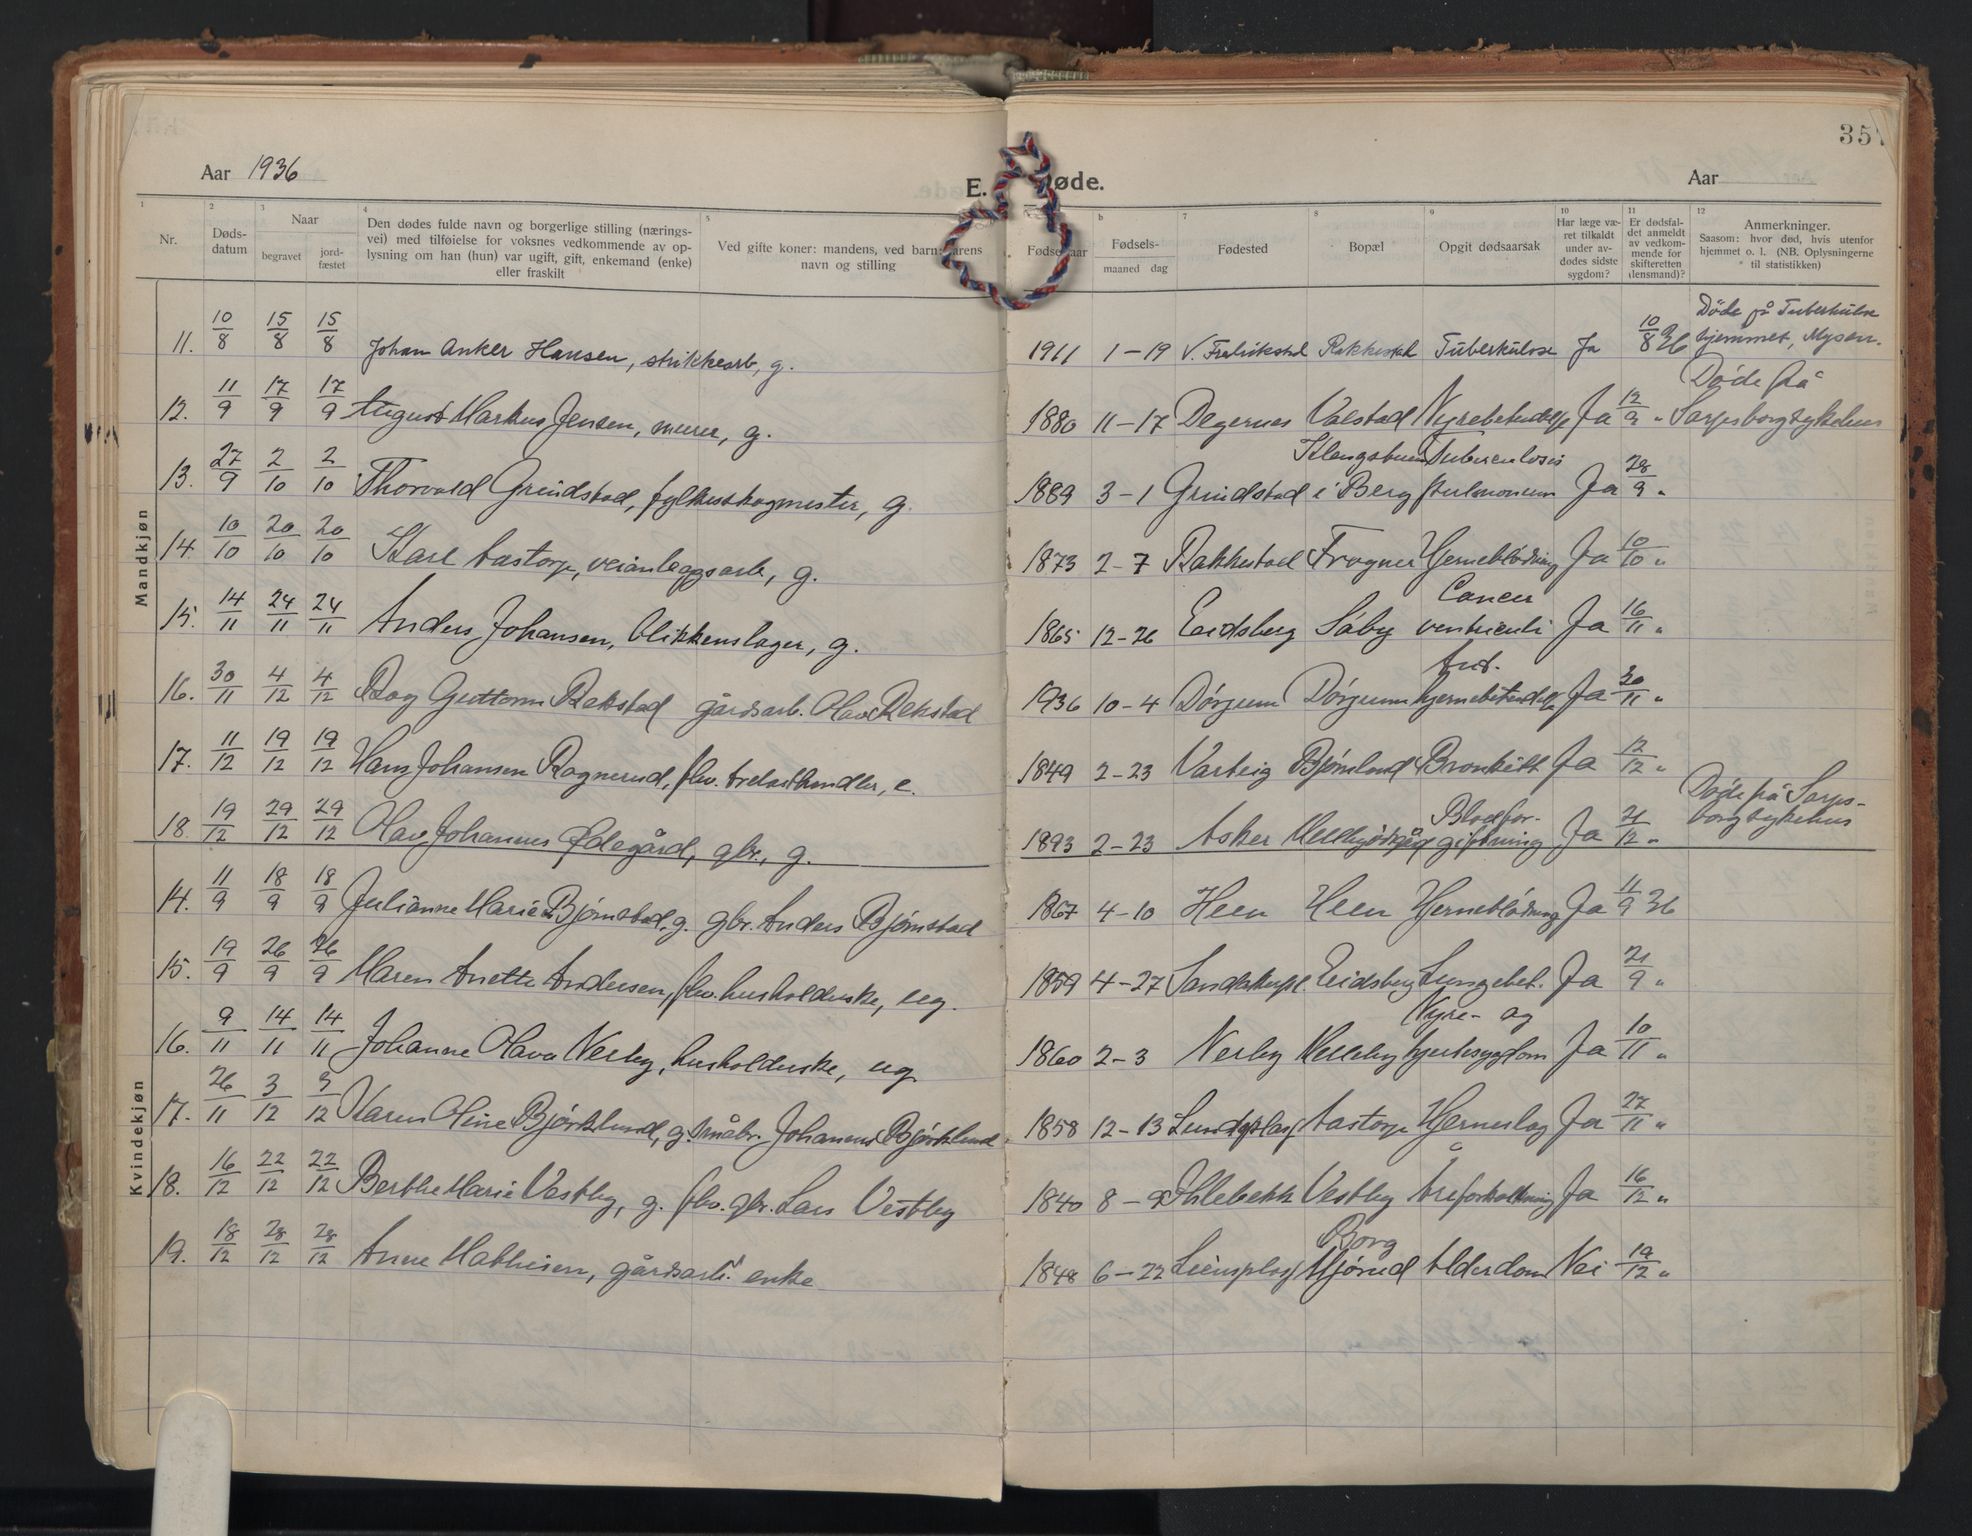 357
Aar 1936
E. Døde.
Aar
1 2 3 4 5 b 7 8 9 10 11 12
Nr.
Døds-
datum
Naar
begravet
jord-
fæstet
Den dødes fulde navn og borgerlige stilling (nærings-
vei) med tilføielse for voksnes vedkommende av op-
lysning om han (hun) var ugift, gift, enkemand (enke)
eller fraskilt
Ved gifte koner: mandens, ved barn: farens
navn og stilling
Fødselsaar
Fødsels-
maaned dag
Fødested
Bopæl
Opgit dødsaarsak
Har læge væ-
ret tilkaldt
under av-
dødes sidste
sygdom?
Er dødsfal-
det anmeldt
av vedkom-
mende for
skifteretten
(lensmand)?
Anmerkninger.
Saasom: hvor død, hvis utenfor
hjemmet o. l. (NB. Oplysningerne
til statistikken)
Mandkjøn
11. 10/8 15/8 15/8 Johan Anker Hansen, strikkearb, g. 1911 1-19 V. Fredrikstad Rakkestad Tuberkulose Ja 10/8 36 Døde på Tuberkulose
hjemmet, Mysen.
12. 11/9 17/9 17/9 August Markus Jensen, murer, g. 1880 11-17 Degernes Valstad Nyrebetendelse Ja 12/9 " Døde på
Sarpsborg sykehus
13. 27/9 2/10 2/10 Thorvald Grindstad, fylkesskogmester, g. 1889 3-1 Grindstad i Berg Tuberculosis
pulmonum Ja 28/9 "
14. 10/10 20/10 20/10 Karl Aastorp, veianleggsarb, g. 1873 2-7 Rakkestad Frogner Hjerneblødning Ja 10/10 "
15. 14/11 24/11 24/11 Anders Johansen, blikkenslager, g. 1865 12-26 Eidsberg Såby Cancer
ventriculi Ja 16/11 "
16. 30/11 4/12 4/12 Roy Guttorm Rakstad gårdsarb. Olav Rakstad 1936 10-4 Dørjum Dørjum hjernebetendelse Ja 30/11 "
17. 11/12 19/12 19/12 Hans Johansen Ragnerud, fhv. trelasthandler, e. 1849 2-23 Varteig Bjørnlund Bronkitt Ja 12/12 "
18. 19/12 29/12 29/12 Olav Johannes Ødegård, gbr., g. 1893 2-23 Asker Blodfor-
giftning Ja 21/12 " Døde på Sarps-
borg sykehus
Kvindekjøn
14. 11/9 18/9 18/9 Julianne Marie Bjørnstad, g. gbr. Anders Bjørnstad 1867 4-10 Heen Heen Hjerneblødning Ja 11/9 36
15. 19/9 26/9 26/9 Maren Anette Andersen, fhv. husholderske, ug. 1859 4-27 Eidsberg Lungebet. Ja 21/9 "
16. 9/11 14/11 14/11 Johanne Olava Nerby, husholderske, ug. 1860 2-3 Nerby Melleby Nyre- og
hjertesygdom Ja 10/11 "
17. 26/11 3/12 3/12 Karen Oline Bjørklund, g. småbr. Johannes Bjørklund 1858 12-13 Lundeplass Aastorp Hjerneslag Ja 27/11 "
18. 16/12 22/12 22/12 Berthe Marie Vestby, g. fhv. gbr. Lars Vestby 1840 8-9 Ihlebekk Vestby Åreforkalkning Ja 16/12 "
19. 18/12 28/12 28/12 Anne Mathisen, gårdsarb. enke 1848 6-22 Liensplass Borg
Mjørud Alderdom Nei 19/12 "